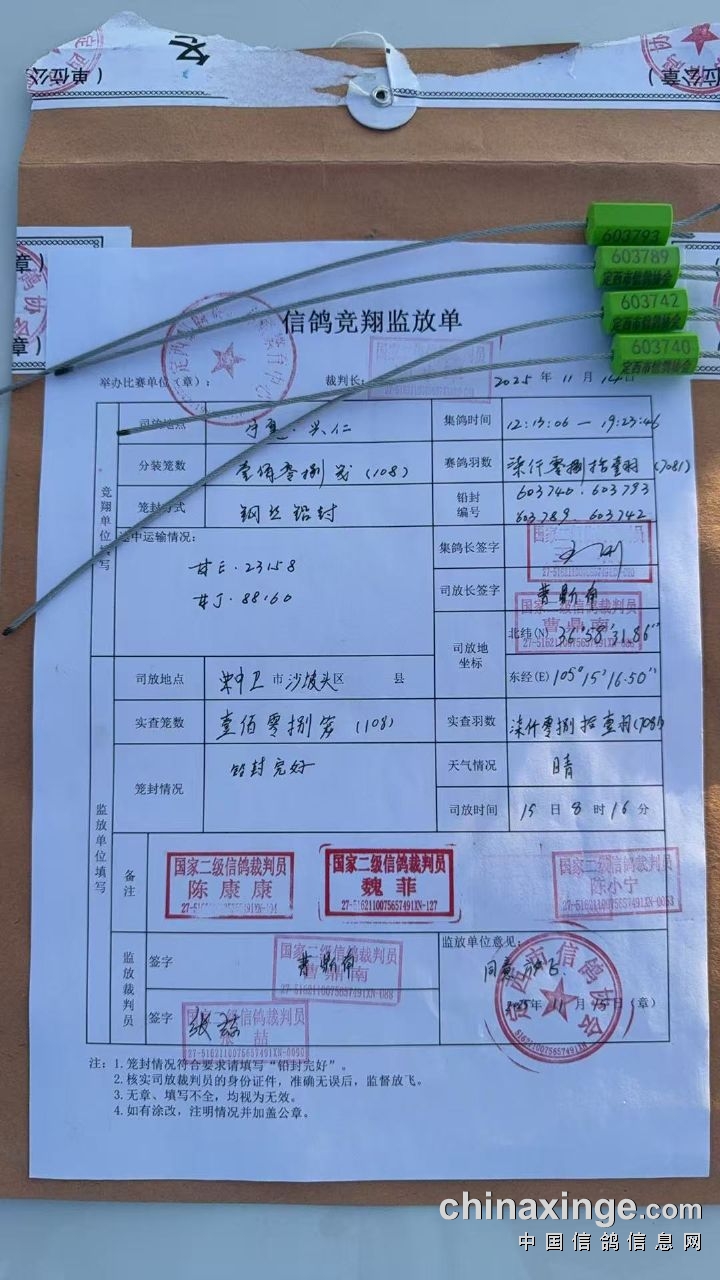 (单位公章)
603793
603789
定西市信鸽协会
603742
定西市信鸽协会
603740
定西市信鸽协会
信鸽竞翔监放单
举办比赛单位(章): 裁判长: 2025 年 11 月 14 日
竞翔单位填写
司放地点 宁夏·兴仁 集鸽时间 12:13:06 — 19:23:46
分装笼数 壹佰零捌笼(108) 赛鸽羽数 柒仟零捌拾壹羽(7081)
笼封方式 钢丝铅封 铅封编号 603740.603793
603789.603742
途中运输情况: 集鸽长签字
甘E·23158
甘J·88160
司放长签字 曹鼎南
国家二级信鸽裁判员
曹鼎南
司放地坐标 北纬(N) 36°58′31.86″
东经(E) 105°15′16.50″
监放单位填写
司放地点 中卫 市 沙坡头 区 县
实查笼数 壹佰零捌笼(108) 实查羽数 柒仟零捌拾壹羽(7081)
笼封情况 铅封完好 天气情况 晴
司放时间 15 日 8 时 16 分
备注
国家二级信鸽裁判员
陈康康
国家二级信鸽裁判员
魏菲
27-5162110075657491XN-127
国家二级信鸽裁判员
陈小宁
监放裁判员
签字 曹鼎南
国家二级信鸽裁判员
曹鼎南
签字 张喆
国家二级信鸽裁判员
张喆
监放单位意见:
同意放飞.
2025年 11 月 15 日(章)
定西市信鸽协会
注: 1. 笼封情况符合要求请填写“铅封完好”。
2. 核实司放裁判员的身份证件，准确无误后，监督放飞。
3. 无章、填写不全，均视为无效。
4. 如有涂改，注明情况并加盖公章。
chinaxinge.com
中国信鸽信息网